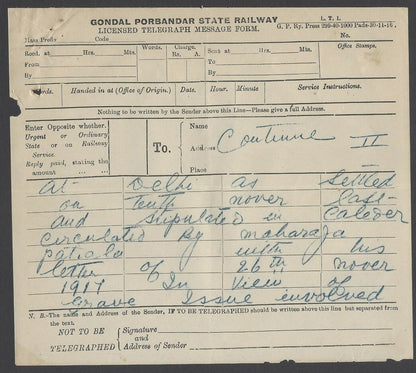 GONDAL PORBANDAR STATE RAILWAY
L. T. 1.
LICENSED TELEGRAPH MESSAGE FORM.
G. P. Ry. Press 299-40-1000 Pads-30-11-15.
Class Prefix Code
Words. Charge. No.
Recd. at Hrs. Mts. Rs. A. Office Stamps.
From
By
Sent at Hrs. Mts.
To
By
Words. Handed in at (Office of Origin). Date. Hour. Minute. Service Instructions.
Nothing to be written by the Sender above this Line—Please give a full Address.
Enter Opposite whether,
Urgent or Ordinary
State or on Railway
Service.
Reply paid, stating the
amount ...
To.
Name
Address
Place
Continue II
at Delhi as settled
on tenth nover last
and stipulated in
circulated By maharaja
patiala with his
letter of 26th nover
1917 In View of
Grave Issue involved
N. B.—The Name and Address of the Sender, IF TO BE TELEGRAPHED should be written above this line but separated from
the text.
NOT TO BE
TELEGRAPHED
Signature
and
Address of Sender